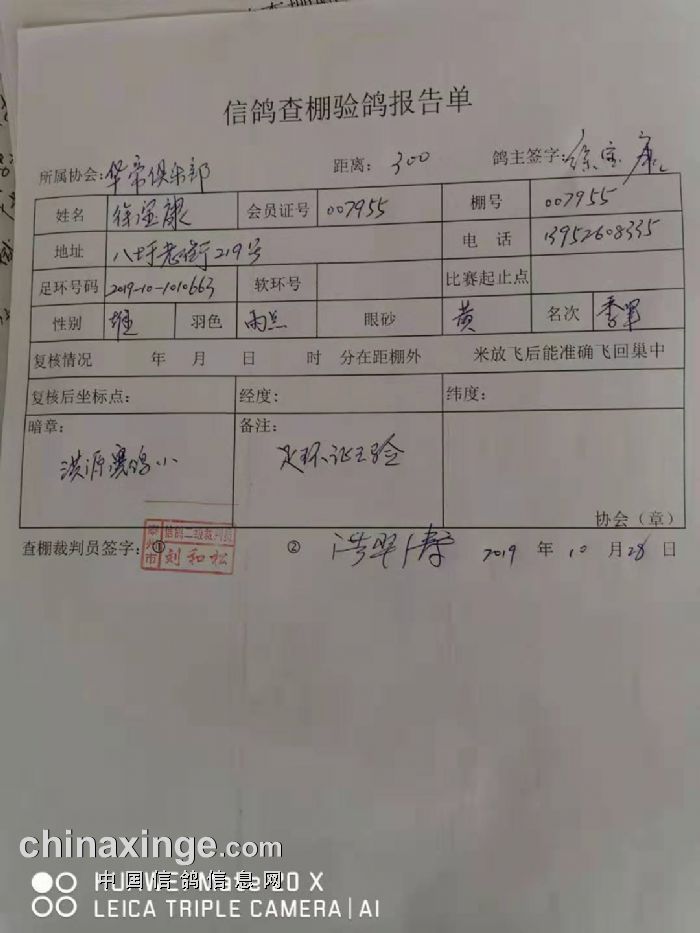 信鸽查棚验鸽报告单
所属协会:华帝俱乐部 距离: 300 鸽主签字:徐宝康
姓名 徐宝康 会员证号 007955 棚号 007955
地址 八圩老街219号 电 话 13952608335
足环号码 2019-10-1010663 软环号 比赛起止点
性别 雄 羽色 雨点 眼砂 黄 名次 季军
复核情况 年 月 日 时 分在距棚外 米放飞后能准确飞回巢中
复核后坐标点: 经度: 纬度:
暗章: 备注:
洪源赛鸽 足环证已验
协会(章)
查棚裁判员签字:① ② 2019 年 10 月 28 日
泰州市 信鸽二级裁判员
刘和松
chinaxinge.com
中国信鸽信息网
HUAWEI Mate 20 X
LEICA TRIPLE CAMERA | AI